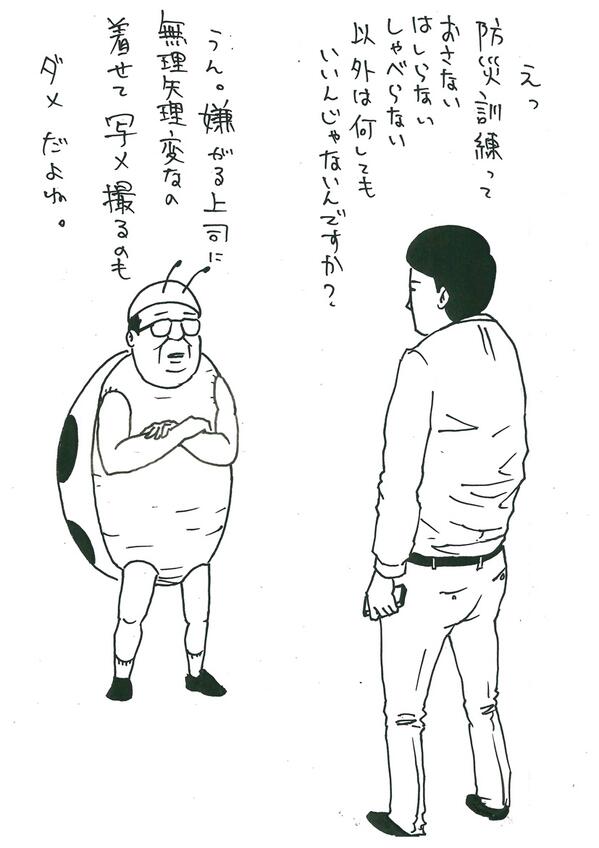 えっ
防災訓練って
おさない
はしらない
しゃべらない
以外は何しても
いいんじゃないんですか？
うん。嫌がる上司に
無理矢理変なの
着せて写メ撮るのも
ダメだよね。